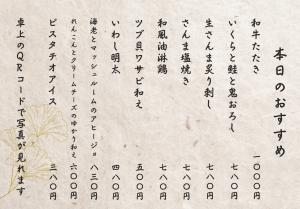 本日のおすすめ
和牛たたき 一〇〇〇円
いくらと鮭と鬼おろし 七八〇円
生さんま炙り刺し 七八〇円
さんま塩焼き 七八〇円
和風油淋鶏 七八〇円
ツブ貝ワサビ和え 五〇〇円
いわし明太 四八〇円
海老とマッシュルームのアヒージョ 八三〇円
れんこんとクリームチーズのゆかり和え 六〇〇円
ピスタチオアイス 三八〇円
卓上のQRコードで写真が見れます